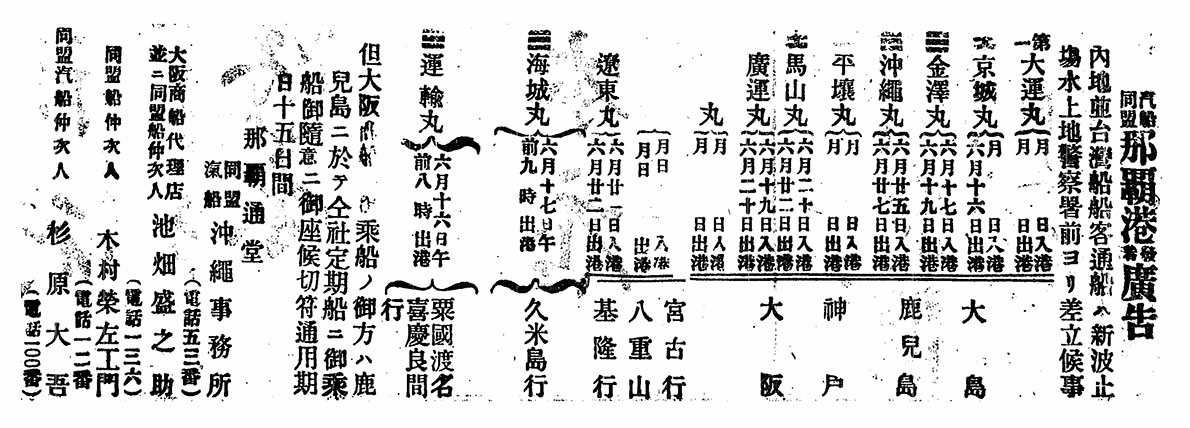 汽船
同盟
那覇港發着廣告
內地並台灣船船客通船ハ新波止
場水上地警察署前ヨリ差立候事
第一大運丸 月 日入港
月 日出港
京城丸 月 日入港
六月十六日出港
金澤丸 六月十七日入港
六月十九日出港
沖繩丸 六月廿五日入港
六月廿七日出港
平壤丸 月 日入港
月 日出港
馬山丸 六月二十日入港
六月廿二日出港
廣運丸 六月十九日入港
六月二十日出港
丸 月 日入港
月 日出港
大島
鹿兒島
神戶
大阪
月日 入港
月日 出港
遼東丸 六月廿一日入港
六月廿二日出港
宮古行
八重山
基隆行
海城丸 六月十七日午
前九時出港
久米島行
運輸丸 六月十六日午
前八時出港
粟國渡名
喜慶良間
行
但大阪 乘船ノ御方ハ鹿
兒島ニ於テ仝社定期船ニ御乘
船御隨意ニ御座候切符通用期
日十五日間
那覇通堂
同盟
汽船
沖繩事務所
(電話五三番)
大阪商船代理店
並ニ同盟船仲次人
池畑盛之助
(電話一三六)
同盟船仲次人 木村榮左工門
(電話一二番
同盟汽船仲次人 杉原大吾
(電話一〇〇番)